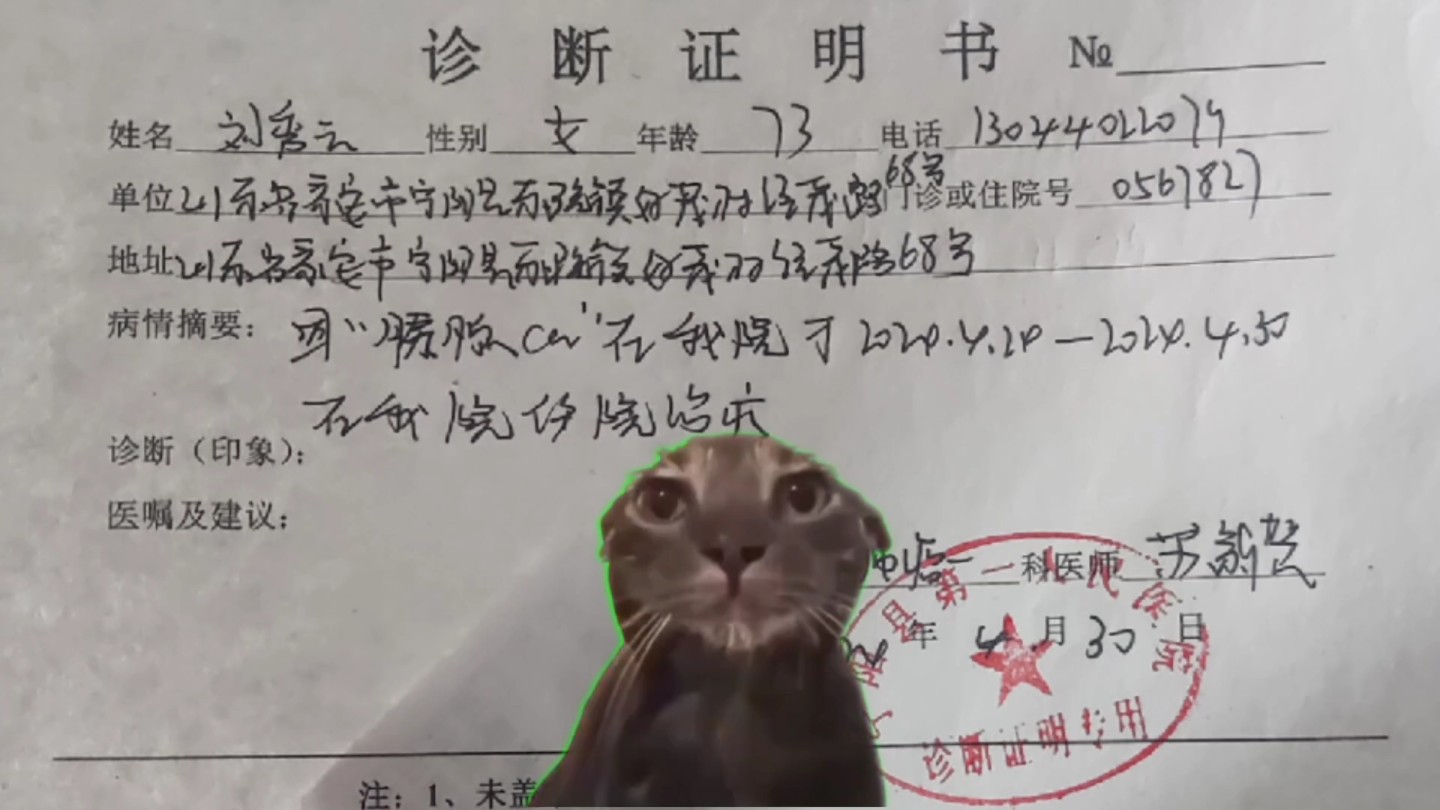 诊断证明书 №
姓名 刘秀云 性别 女 年龄 73 电话 13044022079
68号
单位 山东省泰安市宁阳县 门诊或住院号 0567827
地址 山东省泰安市宁阳县 68号
病情摘要: 因"膀胱Ca"在我院于2024.4.24—2024.4.30
在我院住院治疗
诊断(印象):
医嘱及建议:
科医师
年 4 月 30 日
阳县第一人民医院
诊断证明专用
注:1、未盖